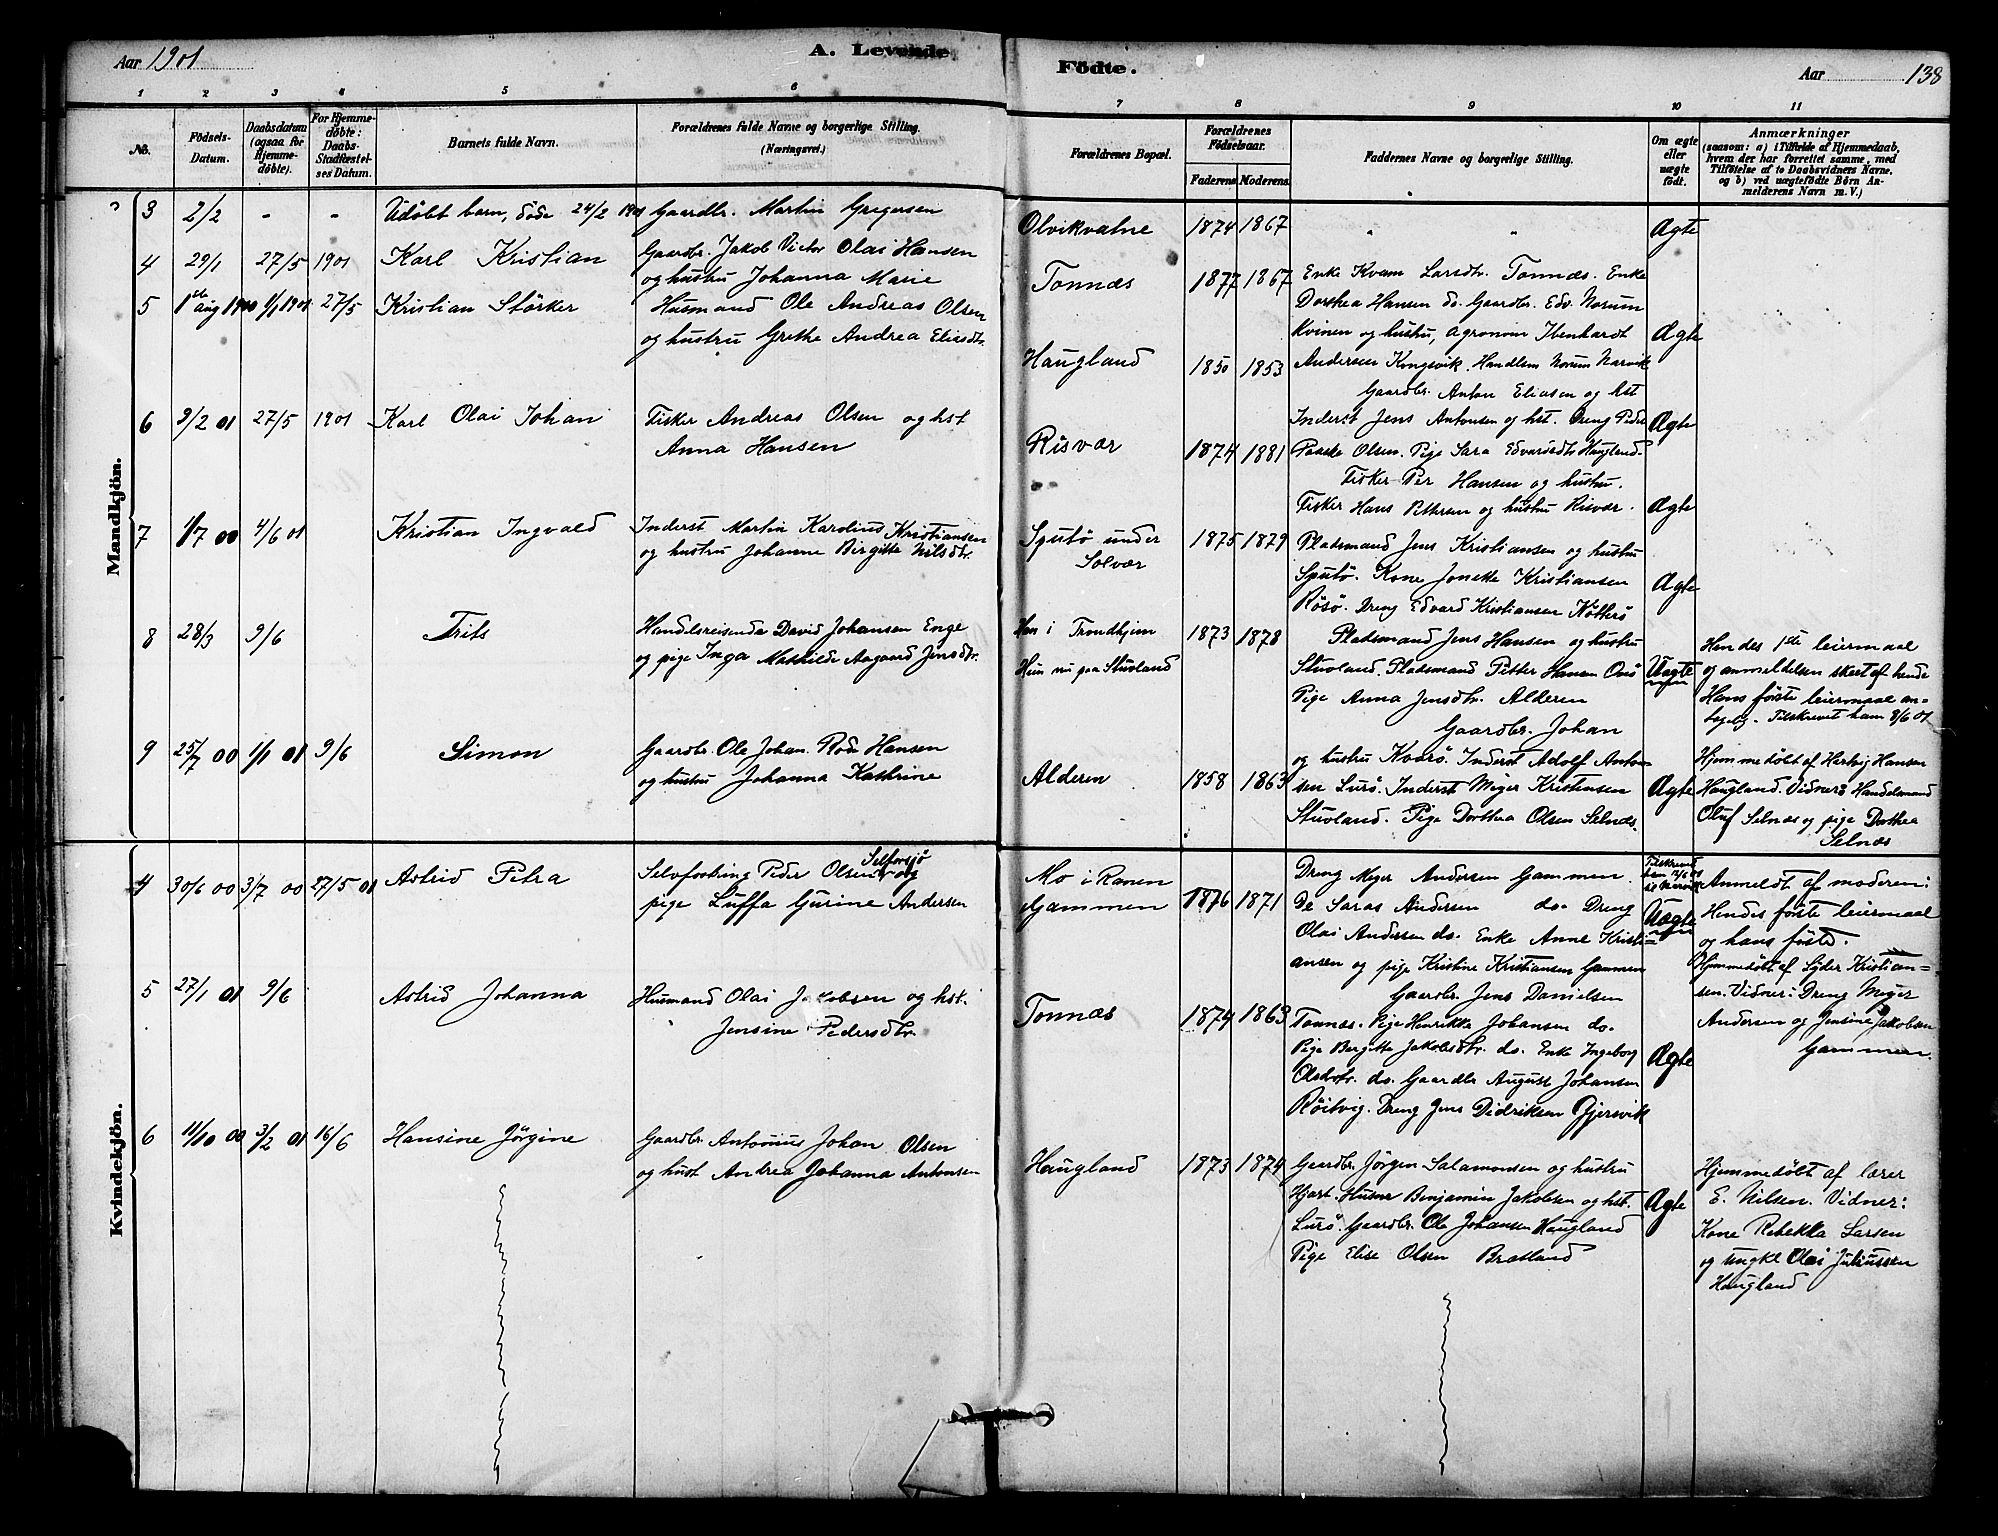 Aar 1901
A. Levende
Födte.
Aar
138
1 2 3 4 5 6 7 8 9 10 11
No.
Födsels-
Datum.
Daabsdatum
(ogsaa for
Hjemme-
döbte).
For Hjemme-
døbte:
Daabs-
Stadfæstel-
ses Datum.
Barnets fulde Navn.
Forældrenes fulde Navne og borgerlige Stilling.
(Næringsvei.)
Forældrenes Bopæl.
Forældrenes
Födselsaar.
Faderens. Moderens.
Faddernes Navne og borgerlige Stilling.
Om ægte
eller
uægte
födt.
Anmærkninger
(saasom: a) i Tilfælde af Hjemmedaab,
hvem der har forrettet samme, med
Tilföielse af to Daabsvidners Navne,
og b) ved uægtefödte Börn An-
melderens Navn m. V.)
Mandkjön.
3 2/2 - - Udöbt barn, döde 24/2 1901 Gaardbr. Martin Gregersen
Olvikvatne 1874 1867 " " Ægte
4 29/1 27/5 1901 Karl Kristian Gaardbr. Jakob Victor Olai Hansen
og hustru Johanna Marie
Tonnæs 1877 1867 Enke Kvam Larsdtr. Tonnæs. Enke
Dorthea Hansen do. Gaardbr. Edv. Norum
Kvinen og hustru, Agronom Ibenhardt Ægte
5 1ste Aug 1900 1/1 1901 27/5 Kristian Störker Husmand Ole Andreas Olsen
og hustru Grethe Andrea Eliasdtr.
Haugland 1850 1853 Andersen Kongsvik. Handlem Norum Narvik
Gaardbr. Anton Eliasen og hst
Inderst Jens Antonsen og hst. Dreng Peder Ægte
6 9/2 01 27/5 1901 Karl Olai Johan Fisker Andreas Olsen og hst
Anna Hansen
Risvær 1874 1881 Paaske Olsen. Pige Sara Edvardsdtr Haugland.
Fisker Per Hansen og hustru.
Fisker Hans Pettersen og hustru Risvær. Ægte
7 1/7 00 4/6 01 Kristian Ingvald Inderst Martin Karolius Kristiansen
og hustru Johanne Birgitte Nilsdtr.
Sputö under
Solvær
1875 1879 Pladsmand Jens Kristiansen og hustru
Sputö. Kone Jonette Kristiansen
Rösö. Dreng Edvard Kristiansen Ægte
8 28/3 9/6 Frits Handelsreisende David Johansen Enge
og pige Inga Mathilde Aagaard Jensdtr.
Han i Trondhjem
Hun nu paa Stuvland
1873 1878 Pladsmand Jens Hansen og hustru
Stuvland. Pladsmand Petter Hansen
Pige Anna Jensdtr. Alderen
Uægte
Hendes 1ste leiermaal
og anmeldelsen skeet af hende
Hans förste leiermaal an-
Tilskrevet ham 8/6 01
9 25/7 00 1/1 01 9/6 Simon Gaardbr. Ole Johan Hansen
og hustru Johanna Kathrine
Alderen 1858 1863 Gaardbr. Johan
og hustru Kvarö. Inderst Adolf Anton-
sen Lurö. Inderst Meyer Kristensen
Stuvland. Pige Dorthea Olsen Selnæs. Ægte
Hjemmedöbt af Hertvig Hansen
Haugland. Vidner: Handelsmand
Oluf Selnæs og pige Dorthea
Selnæs
Kvindekjön.
4 30/6 00 3/7 00 27/5 01 Astrid Petra Selvforsörg. Peder Olsen Selforsjö og
pige Luffa Gurine Andersen
Mo i Ranen
Gammen
1876 1871 Dreng Meyer Andersen Gammen.
De Saras Andersen do. Dreng
Olai Andersen do. Enke Anne Kristi-
ansen og pige Kristine Kristiansen Gammen
Uægte
Anmeldt af moderen:
Hendes förste leiermaal
og hans förste.
Hjemmedöbt af Lyder Kristian-
sen. Vidner: Dreng Meyer
Andersen og Jensine Jakobsen
Gammen.
5 27/1 01 9/6 Astrid Johanna Husmand Olai Jakobsen og hst.
Jensine Pedersdtr.
Tonnæs 1874 1863 Gaardbr. Jens Danielsen
Tonnæs. Pige Henrikke Johansen do.
Pige Bergitte Jakobsdtr. do. Enke Ingeborg
Olsdtr. do. Gaardbr August Johansen
Röitvig. Dreng Jens Didriksen Gjersvik Ægte
6 11/10 00 3/2 01 16/6 Hansine Jörgine Gaardbr Antonius Johan Olsen
og hust Andrea Johanna Antonsen
Haugland 1873 1874 Gaardbr. Jörgen Salamonsen og hustru
Hjart. Husm Benjamin Jakobsen og hst.
Lurö. Gaardbr. Ole Johansen Haugland
Pige Elise Olsen Bratland Ægte
Hjemmedöbt af lærer
E. Nilsen. Vidner:
Kone Rebekka Larsen
og ungkl Olai Juliussen
Haugland